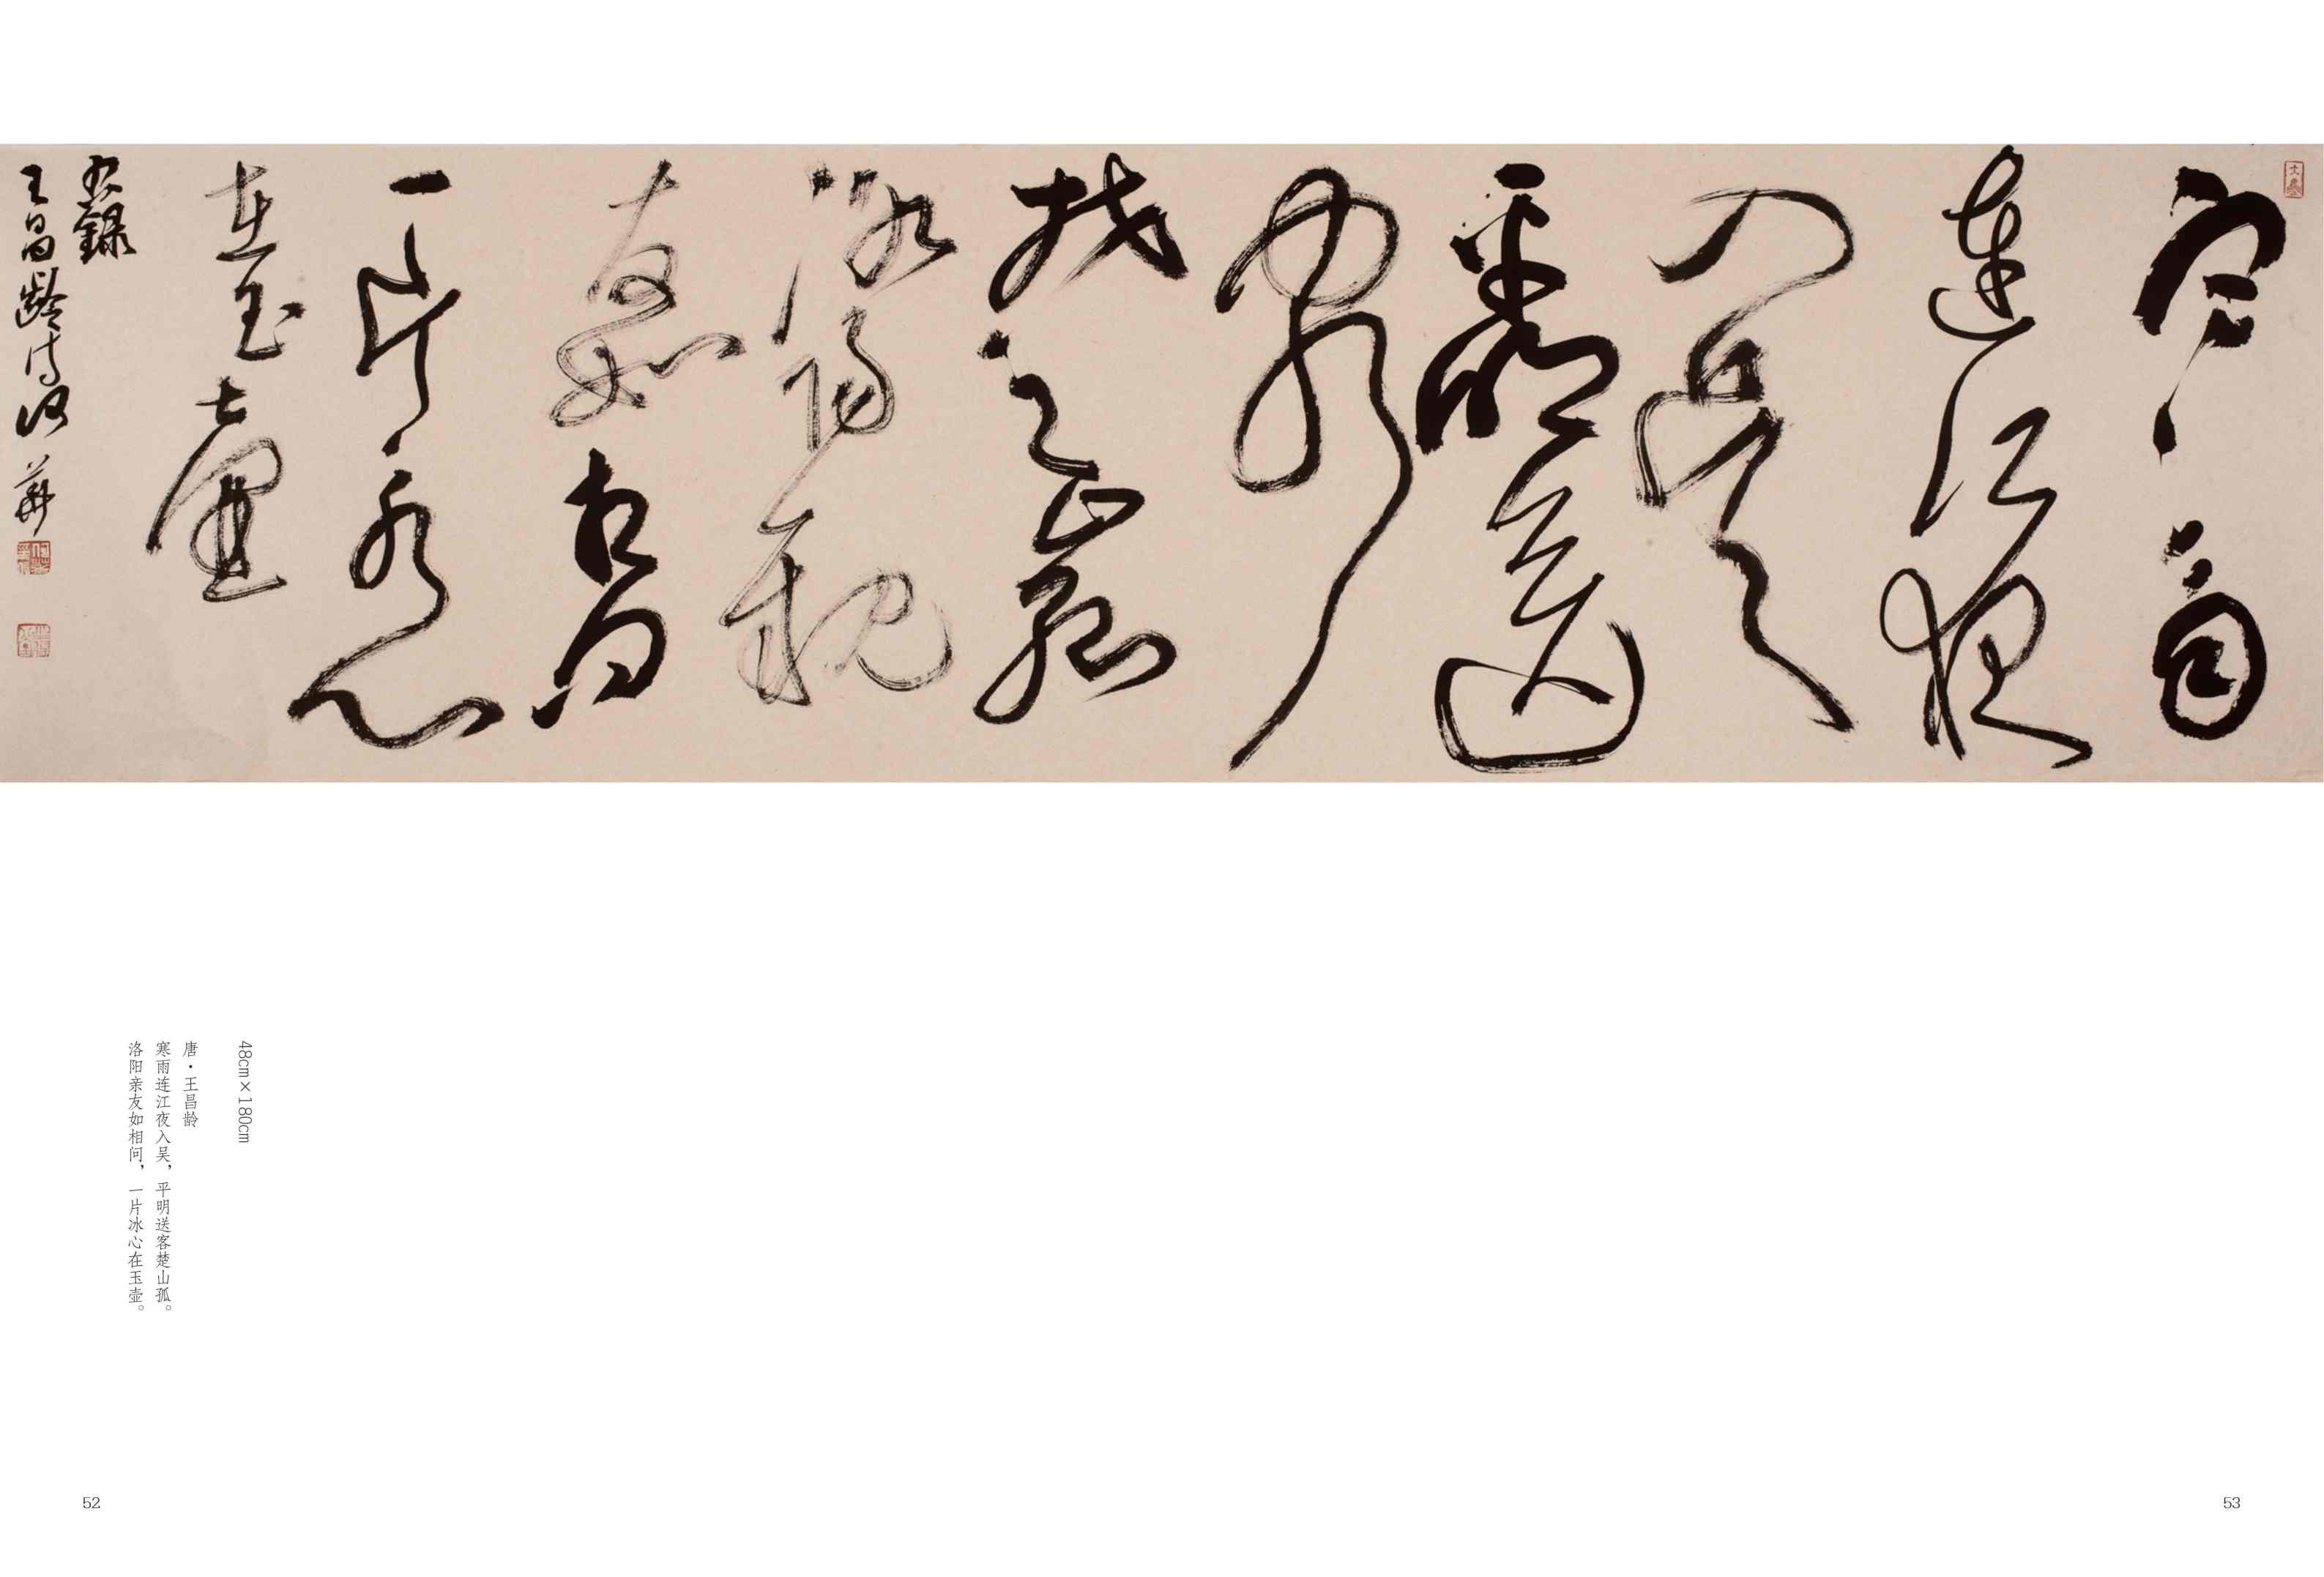 寒雨
連江夜
入吳
平明送
客
楚山孤
洛陽親
友如相问
一片冰心
在玉壺
錄
王昌齡诗何華
48cm×180cm
唐·王昌龄
寒雨连江夜入吴，平明送客楚山孤。
洛阳亲友如相问，一片冰心在玉壶。
52
53